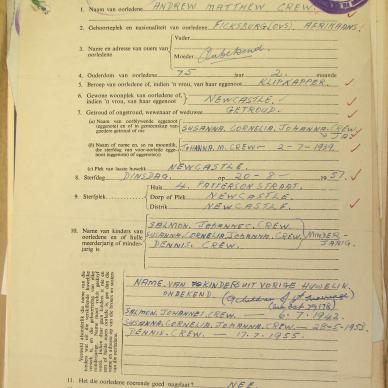 1. Naam van oorledene ANDREW MATTHEW CREW.
2. Geboorteplek en nasionaliteit van oorledene FICKSBURG (OVS). AFRIKAANS.
3. Name en adresse van ouers van oorledene
Vader
Moeder Onbekend.
4. Ouderdom van oorledene 75 jaar 2. maande
5. Beroep van oorledene of, indien 'n vrou, van haar eggenoot KLIPKAPPER.
6. Gewone woonplek van oorledene of, indien 'n vrou, van haar eggenoot NEWCASTLE.
7. Getroud of ongetroud, wewenaar of weduwee GETROUD.
(a) Naam van oorblywende eggenoot (eggenote) en of in gemeenskap van goedere getroud of nie SUSANNA. CORNELIA. JOHANNA. CREW.
(b) Naam of name en, so na moontlik, die sterfdag van voor-oorlede eggenoot (eggenote) of eggenotes JOHANNA. M. CREW — 2-7-1939.
(c) Plek van laaste huwelik NEWCASTLE.
8. Sterfdag DINSDAG. op 20-8- 1957.
9. Sterfplek
Huis 4. PATTERSON STRAAT.
Dorp of Plek NEWCASTLE.
Distrik NEWCASTLE.
10. Naam van kinders van oorledene en of hulle meerderjarig of minderjarig is.
SALMON. JOHANNES. CREW.
SUSANNA. CORNELIA. JOHANNA. CREW. MINDER-
DENNIS. CREW. JARIG.
NAME. VAN KINDERS UIT VORIGE HUWELIK
ONBEKEND.
SALMON. JOHANNES. CREW. — 6-7-1942.
SUSANNA. CORNELIA. JOHANNA. CREW — 28-5-1953.
DENNIS. CREW. — 17.7.1955.
11. Het die oorledene roerende goed nagelaat? NEE.